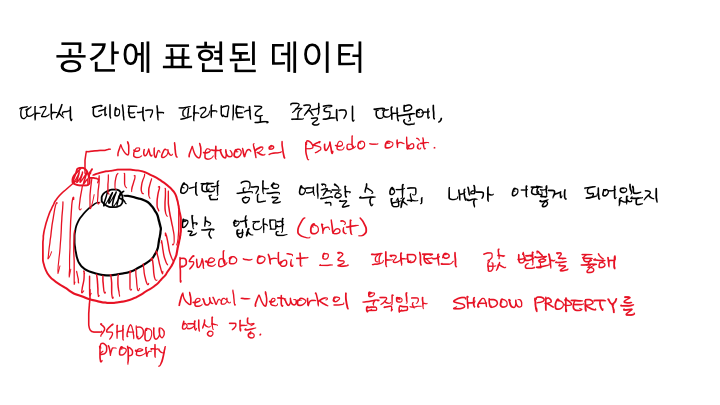 공간에 표현된 데이터
따라서 데이터가 파라미터로 조절되기 때문에,
Neural Network의 psuedo-orbit.
어떤 공간을 예측할 수 없고, 내부가 어떻게 되어있는지
알수 없다면 (orbit)
psuedo-orbit 으로 파라미터의 값 변화를 통해
Neural-Network의 움직임과 SHADOW PROPERTY를
예상 가능.
SHADOW
property